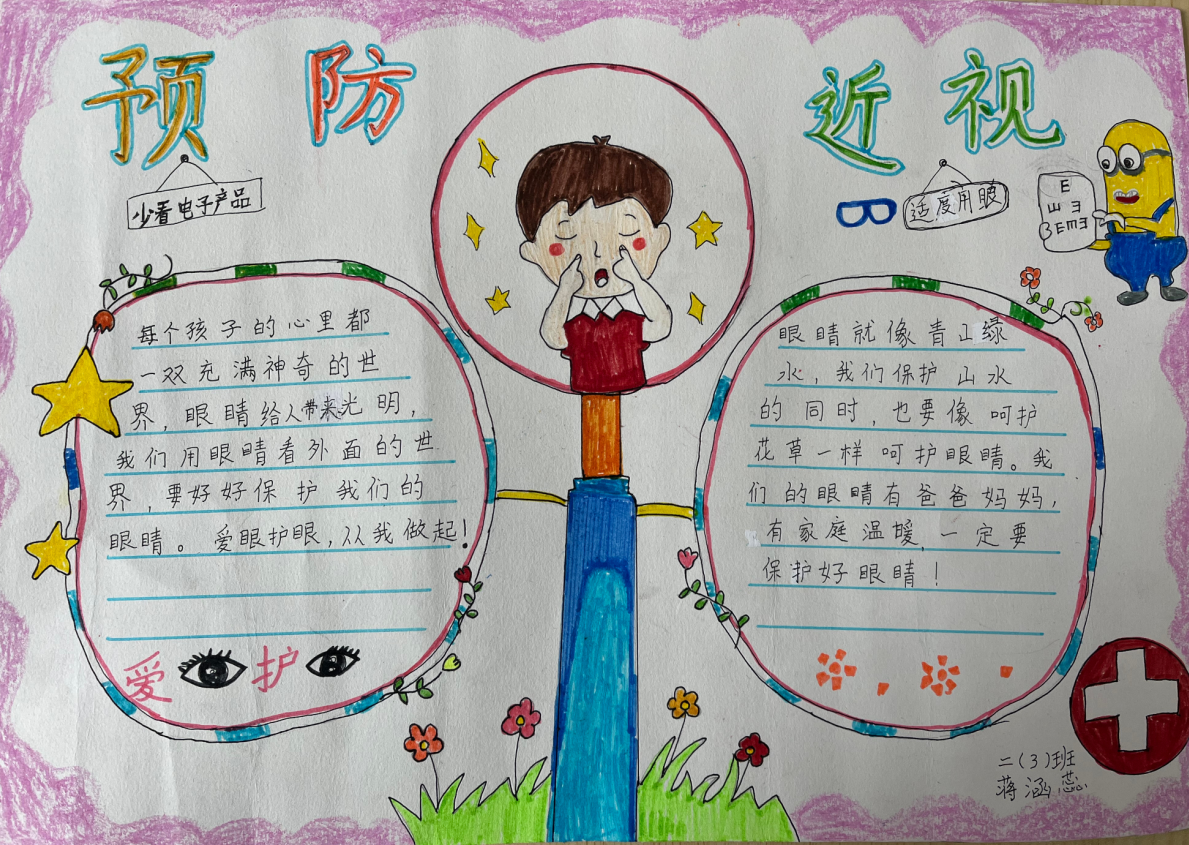 预防近视
少看电子产品
适度用眼
B
E
山 ヨ
3 E m ヨ
每个孩子的心里都
一双充满神奇的世
界，眼睛给人带来光明，
我们用眼睛看外面的世
界，要好好保护我们的
眼睛。爱眼护眼，从我做起！
爱 护
眼睛就像青山绿
水，我们保护山水
的同时，也要像呵护
花草一样呵护眼睛。我
们的眼睛有爸爸妈妈，
有家庭温暖，一定要
保护好眼睛！
二(3)班
蒋涵蕊